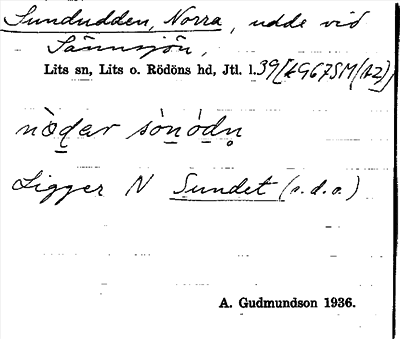 Sundudden, Norra, udde vid
Sännsjön,
Lits sn, Lits o. Rödöns hd, Jtl. l. 39
nò̱d̠ar sò̱nó̱dn̥
Ligger N Sundet (s.d.o.)
A. Gudmundson 1936.